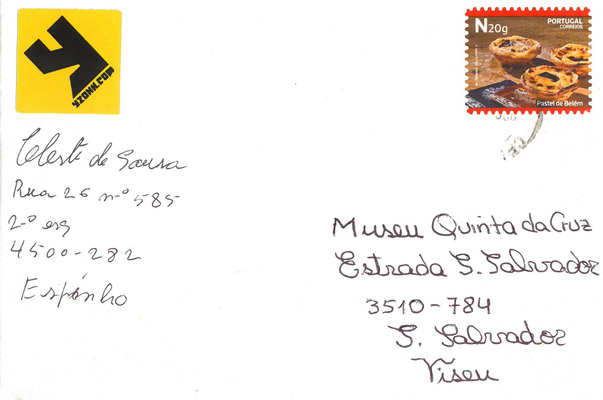 yzonk.com
N20g
PORTUGAL
CORREIOS
Pastel de Belém
Celeste de Sousa
Rua 26 nº 585
2º esq
4500-282
Espinho
Museu Quinta da Cruz
Estrada S. Salvador
3510-784
S. Salvador
Viseu